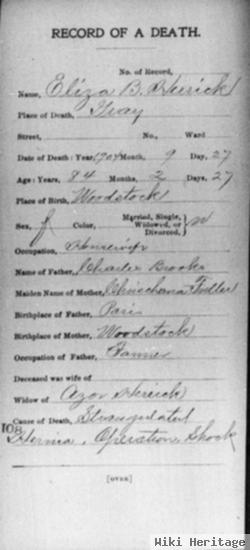 RECORD OF A DEATH.
No. of Record,
Name, Eliza B. Herrick
Place of Death, Gray
Street, No., Ward
Date of Death: Year, 1904 Month, 9 Day, 27
Age: Years, 84 Months, 2 Days, 27
Place of Birth, Woodstock
Married, Single,
Sex, f Color, Widowed, or W
Divorced,
Occupation, Housewife
Name of Father, Charles Brooks
Maiden Name of Mother, Fuller
Birthplace of Father, Paris
Birthplace of Mother, Woodstock
Occupation of Father, Farmer
Deceased was wife of
Widow of Azor Herrick
Cause of Death, Strangulated
108 Hernia. Operation Shock
[OVER]
Wiki Heritage